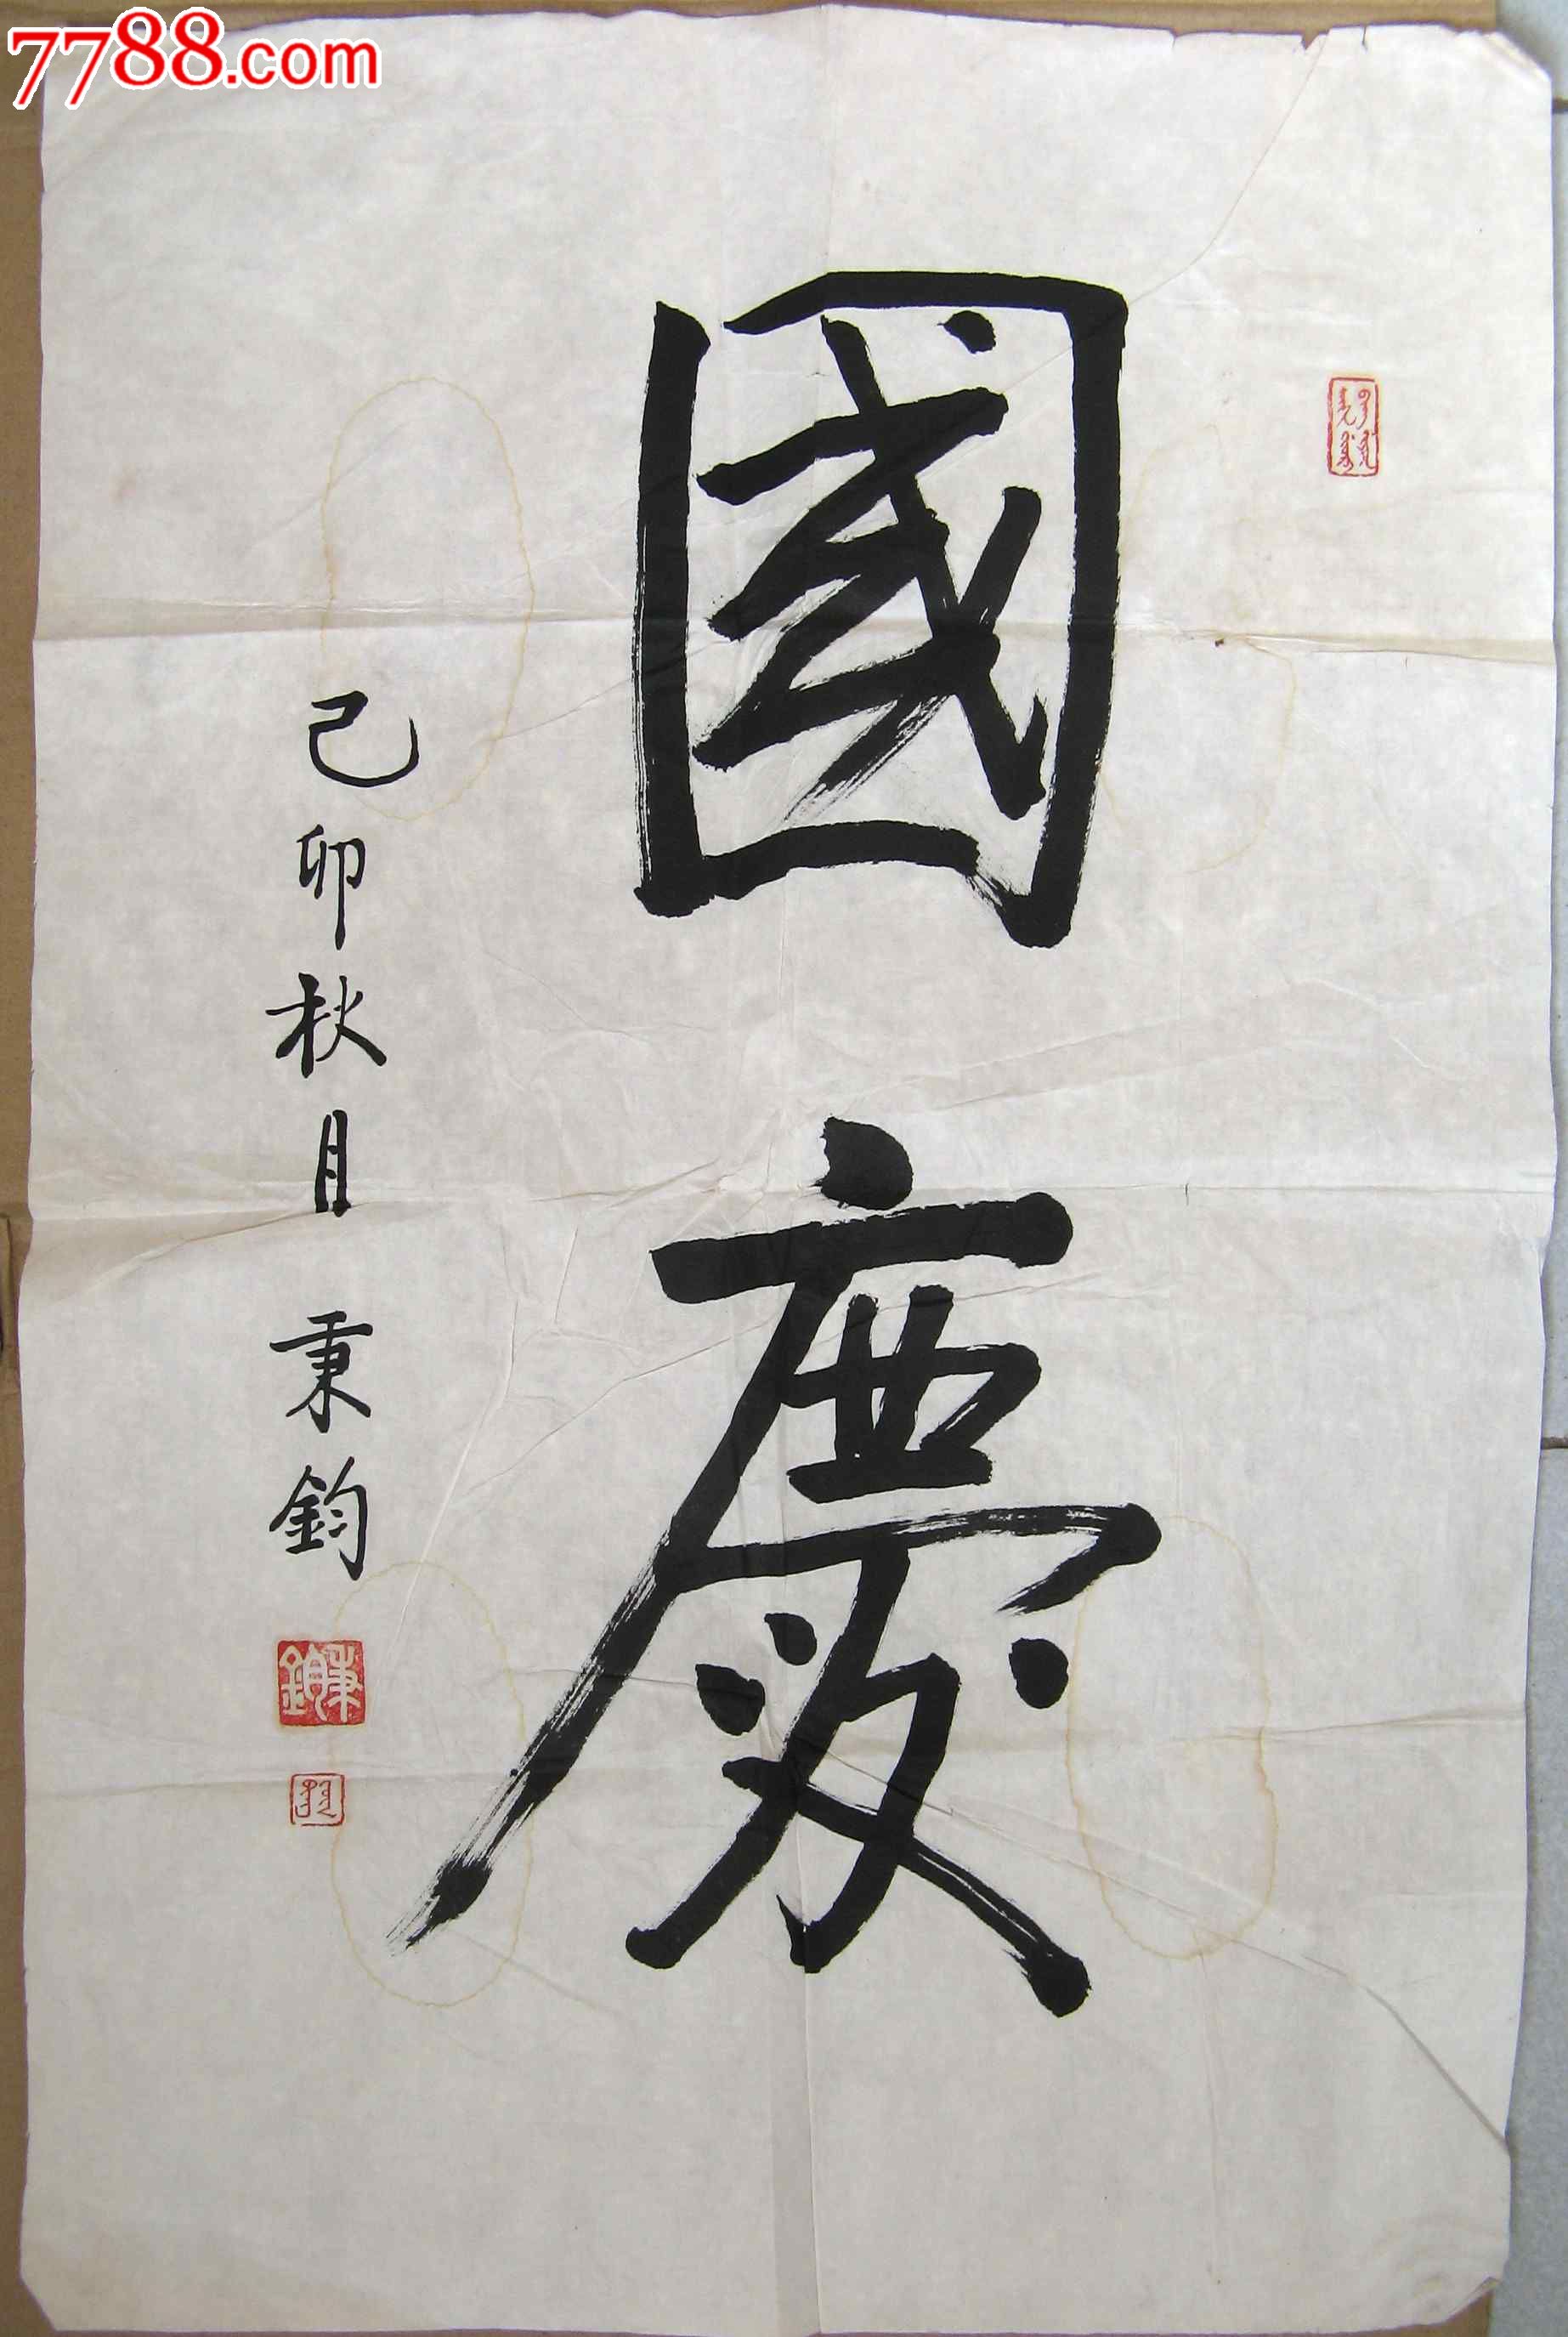 7788.com
國慶
己卯秋月 秉鈞
秉鈞